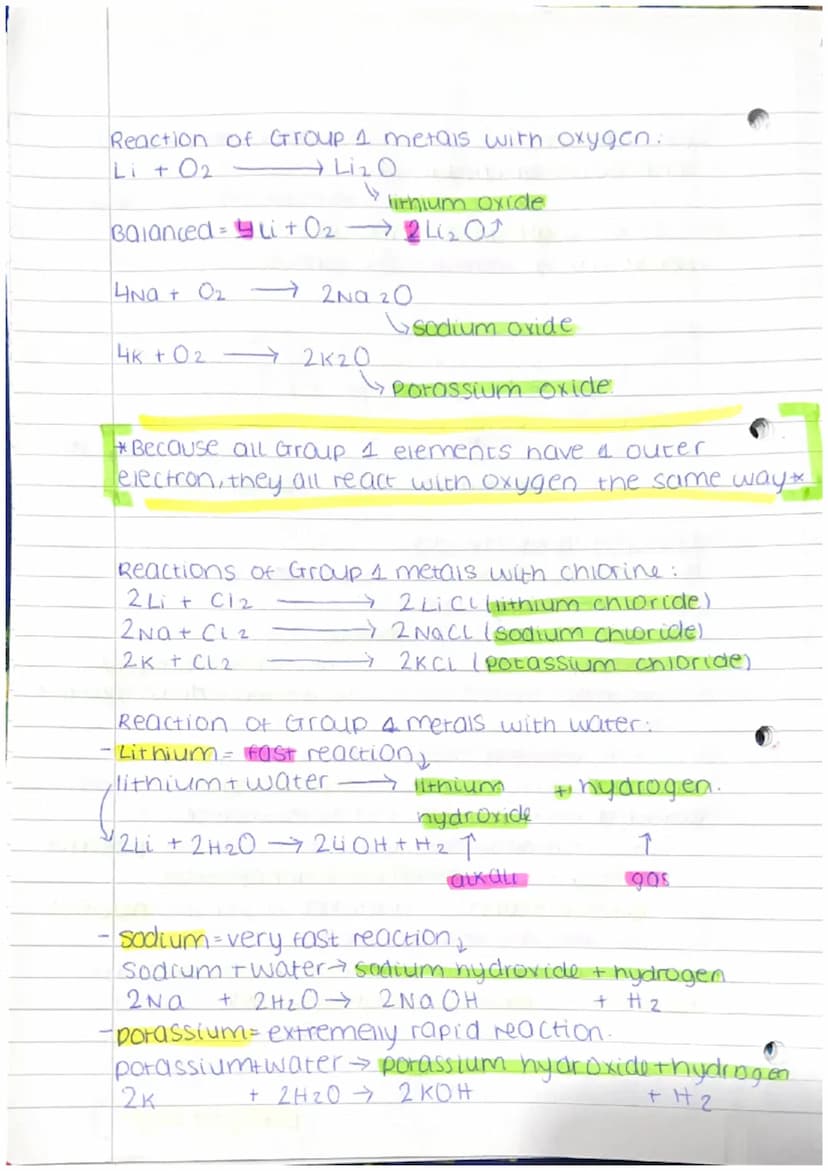 Reaction of Group 1 metals with oxygen:
Li + O2 ⟶ Li2O
↳ lithium oxide
Balanced = 4Li + O2 ⟶ 2Li2O↑
4Na + O2 ⟶ 2Na2O
↳ sodium oxide
4K + O2 ⟶ 2K2O
↳ potassium oxide
*Because all Group 1 elements have 1 outer
electron, they all react with oxygen the same way*
Reactions of Group 1 metals with chlorine:
2Li + Cl2 ⟶ 2LiCl (lithium chloride)
2Na + Cl2 ⟶ 2NaCl (sodium chloride)
2K + Cl2 ⟶ 2KCl (potassium chloride)
Reaction of Group 1 metals with water:
- Lithium = fast reaction ↓
lithium + water ⟶ lithium + hydrogen.
hydroxide
2Li + 2H2O → 2LiOH + H2 ↑ ↑
alkali gas
- sodium = very fast reaction ↓
Sodium + water → sodium hydroxide + hydrogen
2Na + 2H2O → 2NaOH + H2
- potassium = extremely rapid reaction.
potassium + water → potassium hydroxide + hydrogen
2K + 2H2O → 2KOH + H2